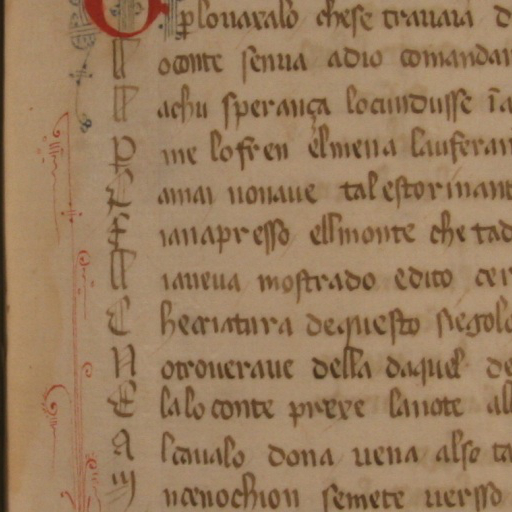 plouaxalo chese trauaia d
ll oconte senua adio comandan
ll achu sperança locundusse ia
P me lo fren elmena lauferan
C amai nonaue tal estorinant
E ianapresso ellmonte che tad
ll iaueua mostrado edito cer
C hecriatura dequesto siegolo
N otroueraue della daquel de
E lalo conte prexe lanote al
A lcaualo dona uena also ta
M ncenochion semete uersso